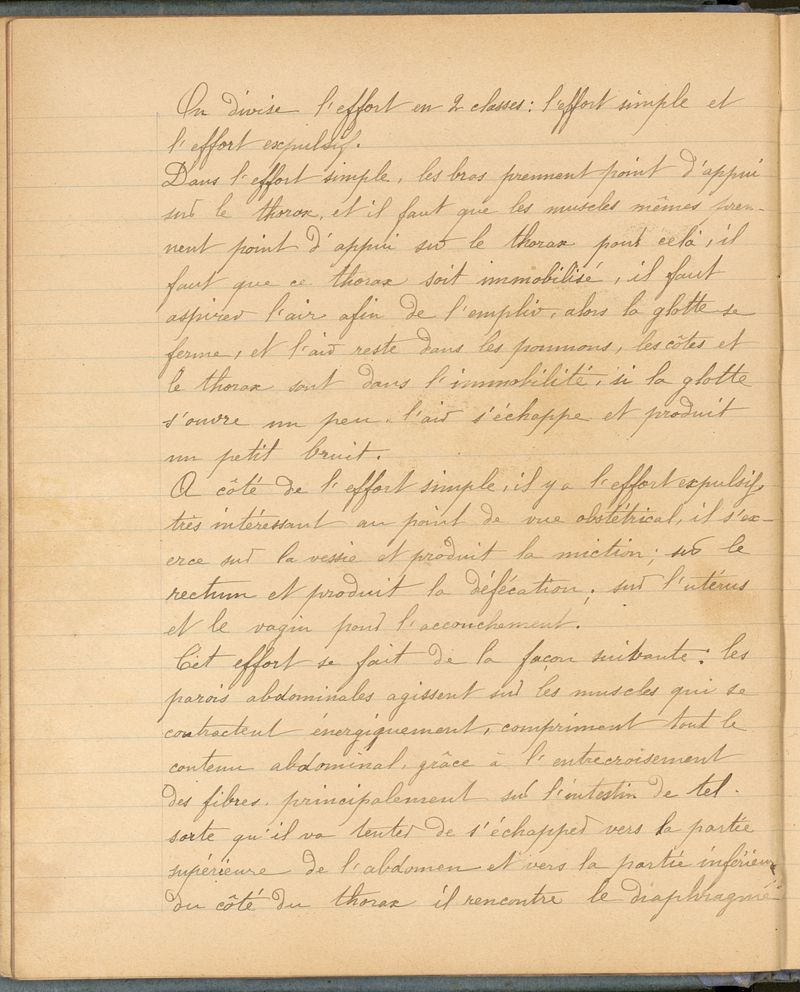 On divise l'effort en 2 classes : l'effort simple et
l'effort expulsif.
Dans l'effort simple, les bras prennent point d'appui
sur le thorax, et il faut que les muscles mêmes pren-
nent point d'appui sur le thorax pour cela, il
faut que ce thorax soit immobilisé, il faut
aspirer l'air afin de l'emplir, alors la glotte se
ferme, et l'air reste dans les poumons, les côtes et
le thorax sont dans l'immobilité, si la glotte
s'ouvre un peu, l'air s'échappe et produit
un petit bruit.
A côté de l'effort simple, il y a l'effort expulsif
très intéressant au point de vue obstétrical, il s'ex-
erce sur la vessie et produit la miction ; sur le
rectum et produit la défécation ; sur l'utérus
et le vagin pour l'accouchement.
Cet effort se fait de la façon suivante : les
parois abdominales agissent sur les muscles qui se
contractent énergiquement, compriment tout le
contenu abdominal, grâce à l'entrecroisement
des fibres, principalement sur l'intestin de tel-
sorte qu'il va tenter de s'échapper vers la partie
supérieure de l'abdomen et vers la partie inférieure
du côté du thorax il rencontre le diaphragme